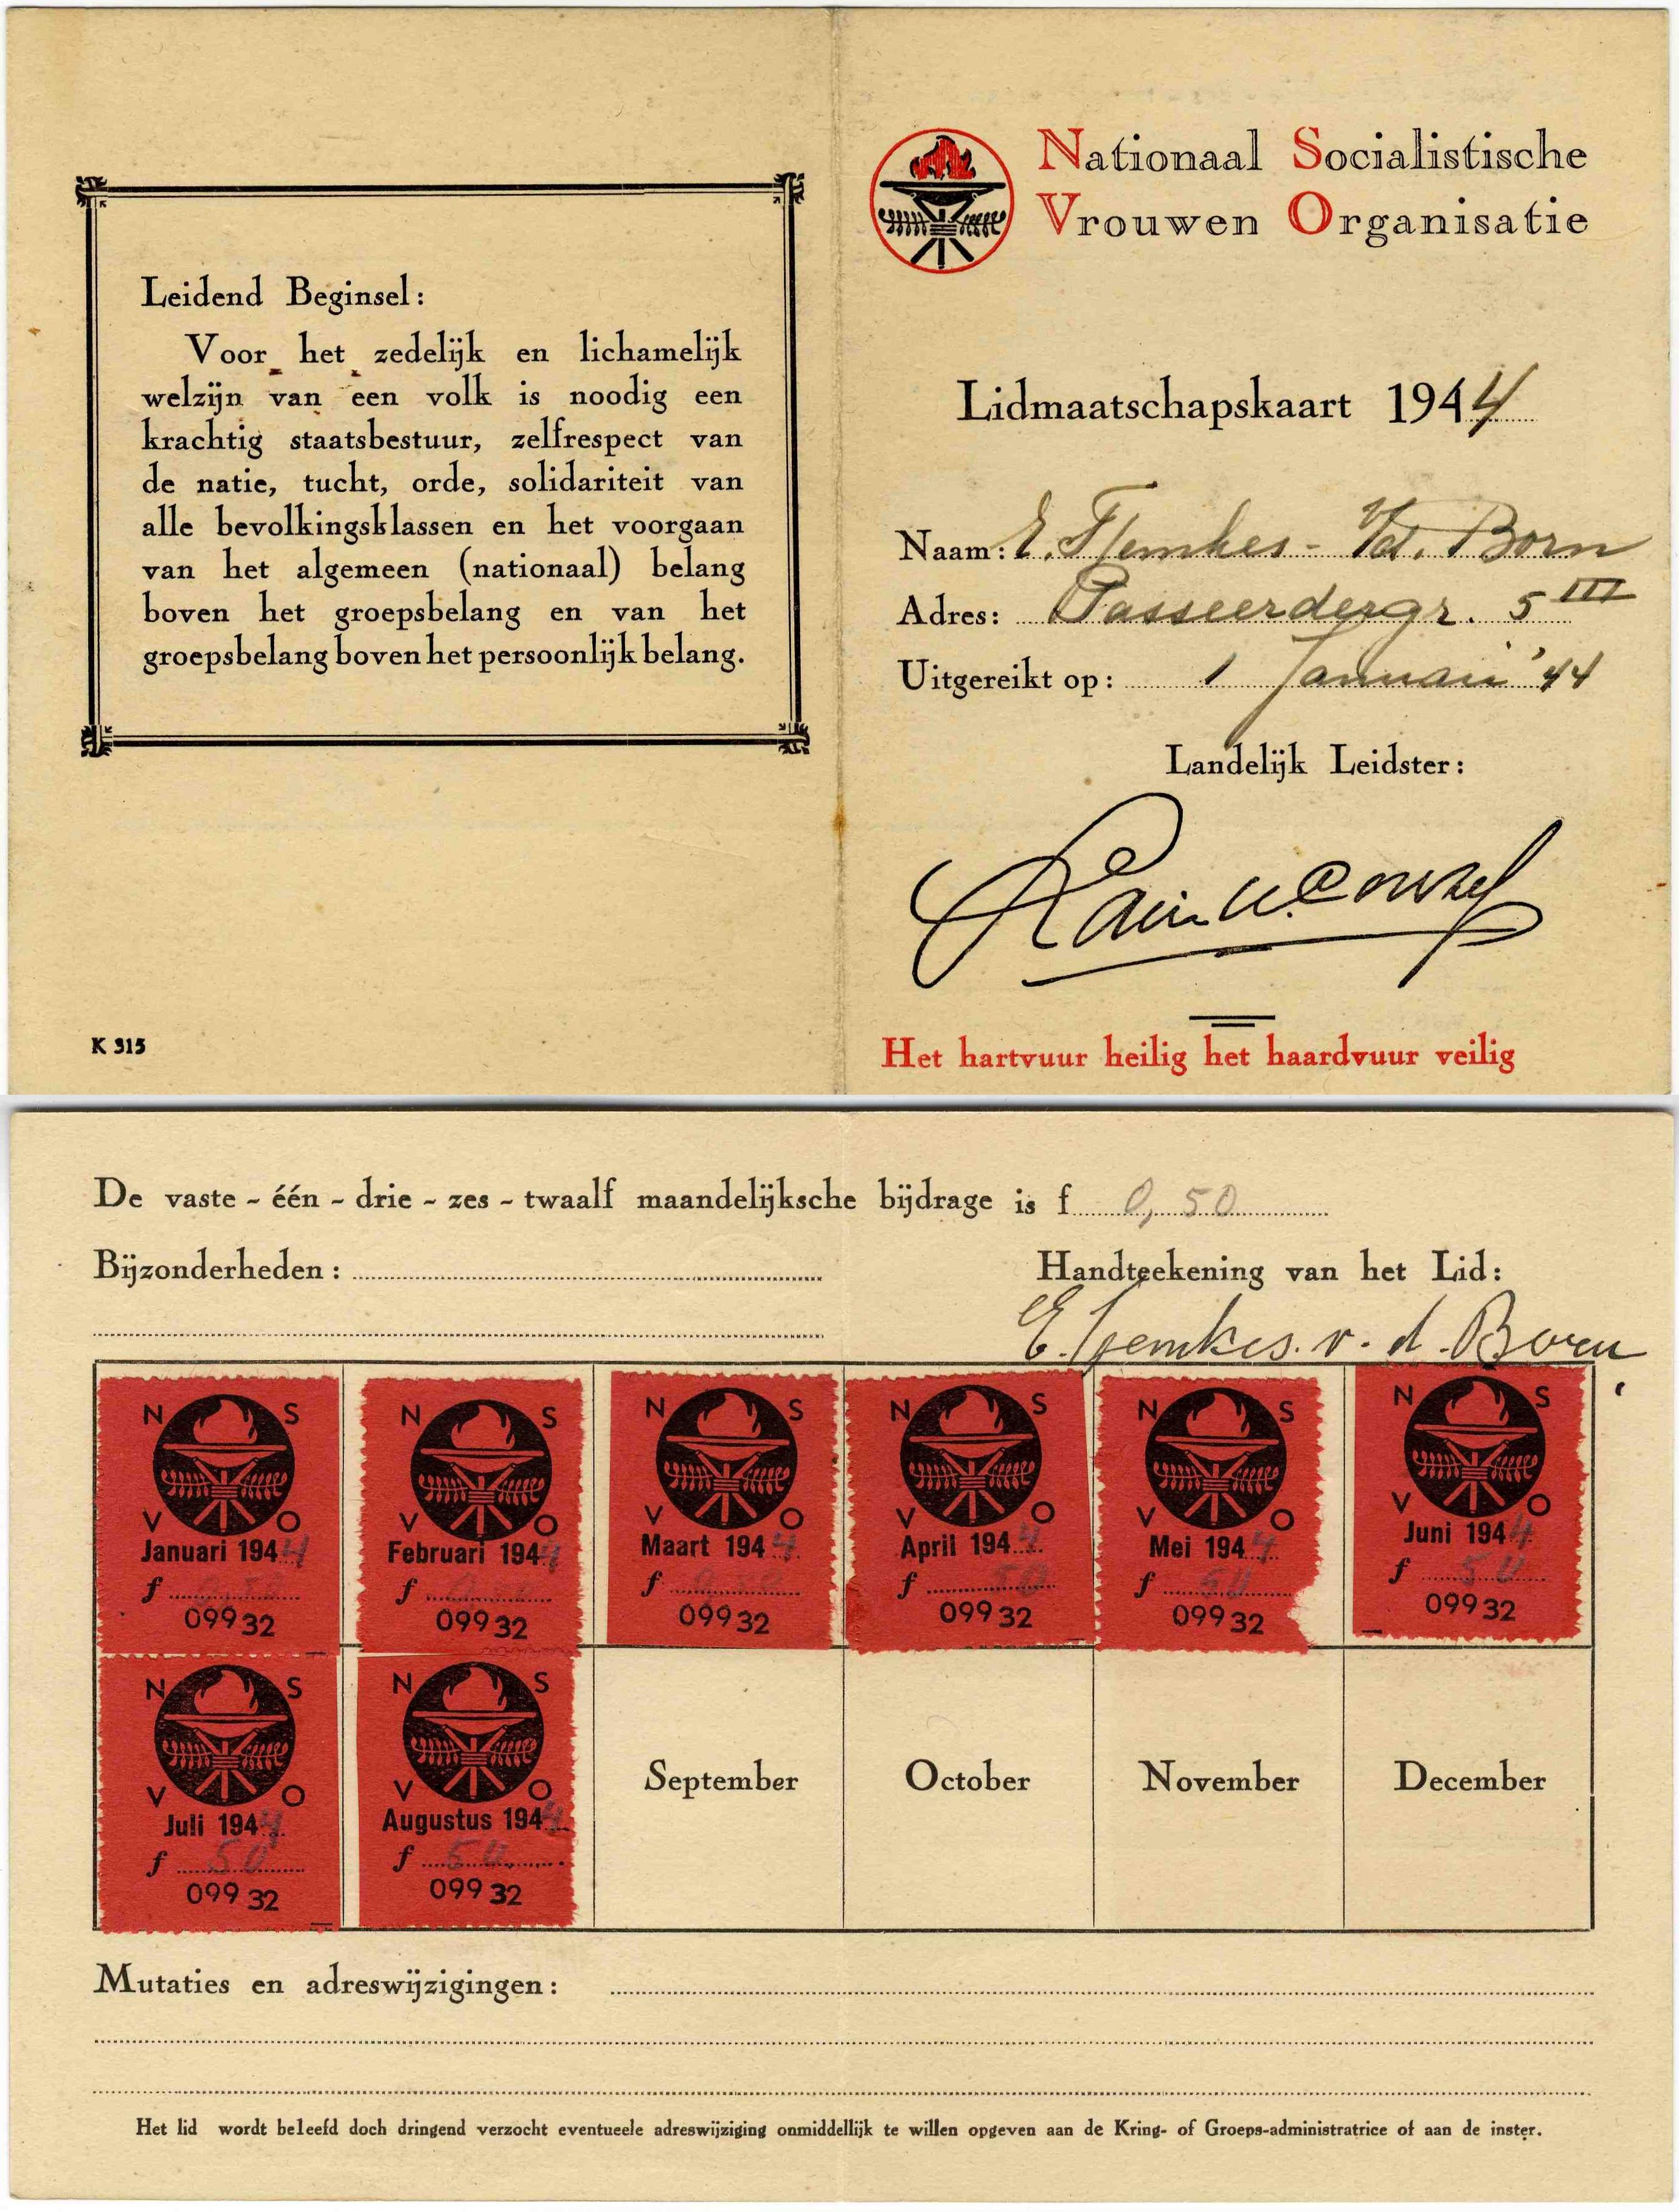 Leidend Beginsel:
Voor het zedelijk en lichamelijk
welzijn van een volk is noodig een
krachtig staatsbestuur, zelfrespect van
de natie, tucht, orde, solidariteit van
alle bevolkingsklassen en het voorgaan
van het algemeen (nationaal) belang
boven het groepsbelang en van het
groepsbelang boven het persoonlijk belang.
K 315
Nationaal Socialistische
Vrouwen Organisatie
Lidmaatschapskaart 1944
Naam: E. Tjemkes - v/d. Born
Adres: Passeerdergr. 5 III
Uitgereikt op: 1 Januari '44
Landelijk Leidster:
Het hartvuur heilig het haardvuur veilig
De vaste - één - drie - zes - twaalf maandelijksche bijdrage is f 0,50
Bijzonderheden:
Handteekening van het Lid:
E. Tjemkes. v. d. Born
N S
V O
Januari 1944
f 0,50
09932
N S
V O
Februari 1944
f 0,50
09932
N S
V O
Maart 1944
f 0,50
09932
N S
V O
April 1944
f 50
09932
N S
V O
Mei 1944
f 50
09932
N S
V O
Juni 1944
f 50
09932
N S
V O
Juli 1944
f 50
09932
N S
V O
Augustus 1944
f 50
09932
September
October
November
December
Mutaties en adreswijzigingen:
Het lid wordt beleefd doch dringend verzocht eventueele adreswijziging onmiddellijk te willen opgeven aan de Kring- of Groeps-administratrice of aan de inster.